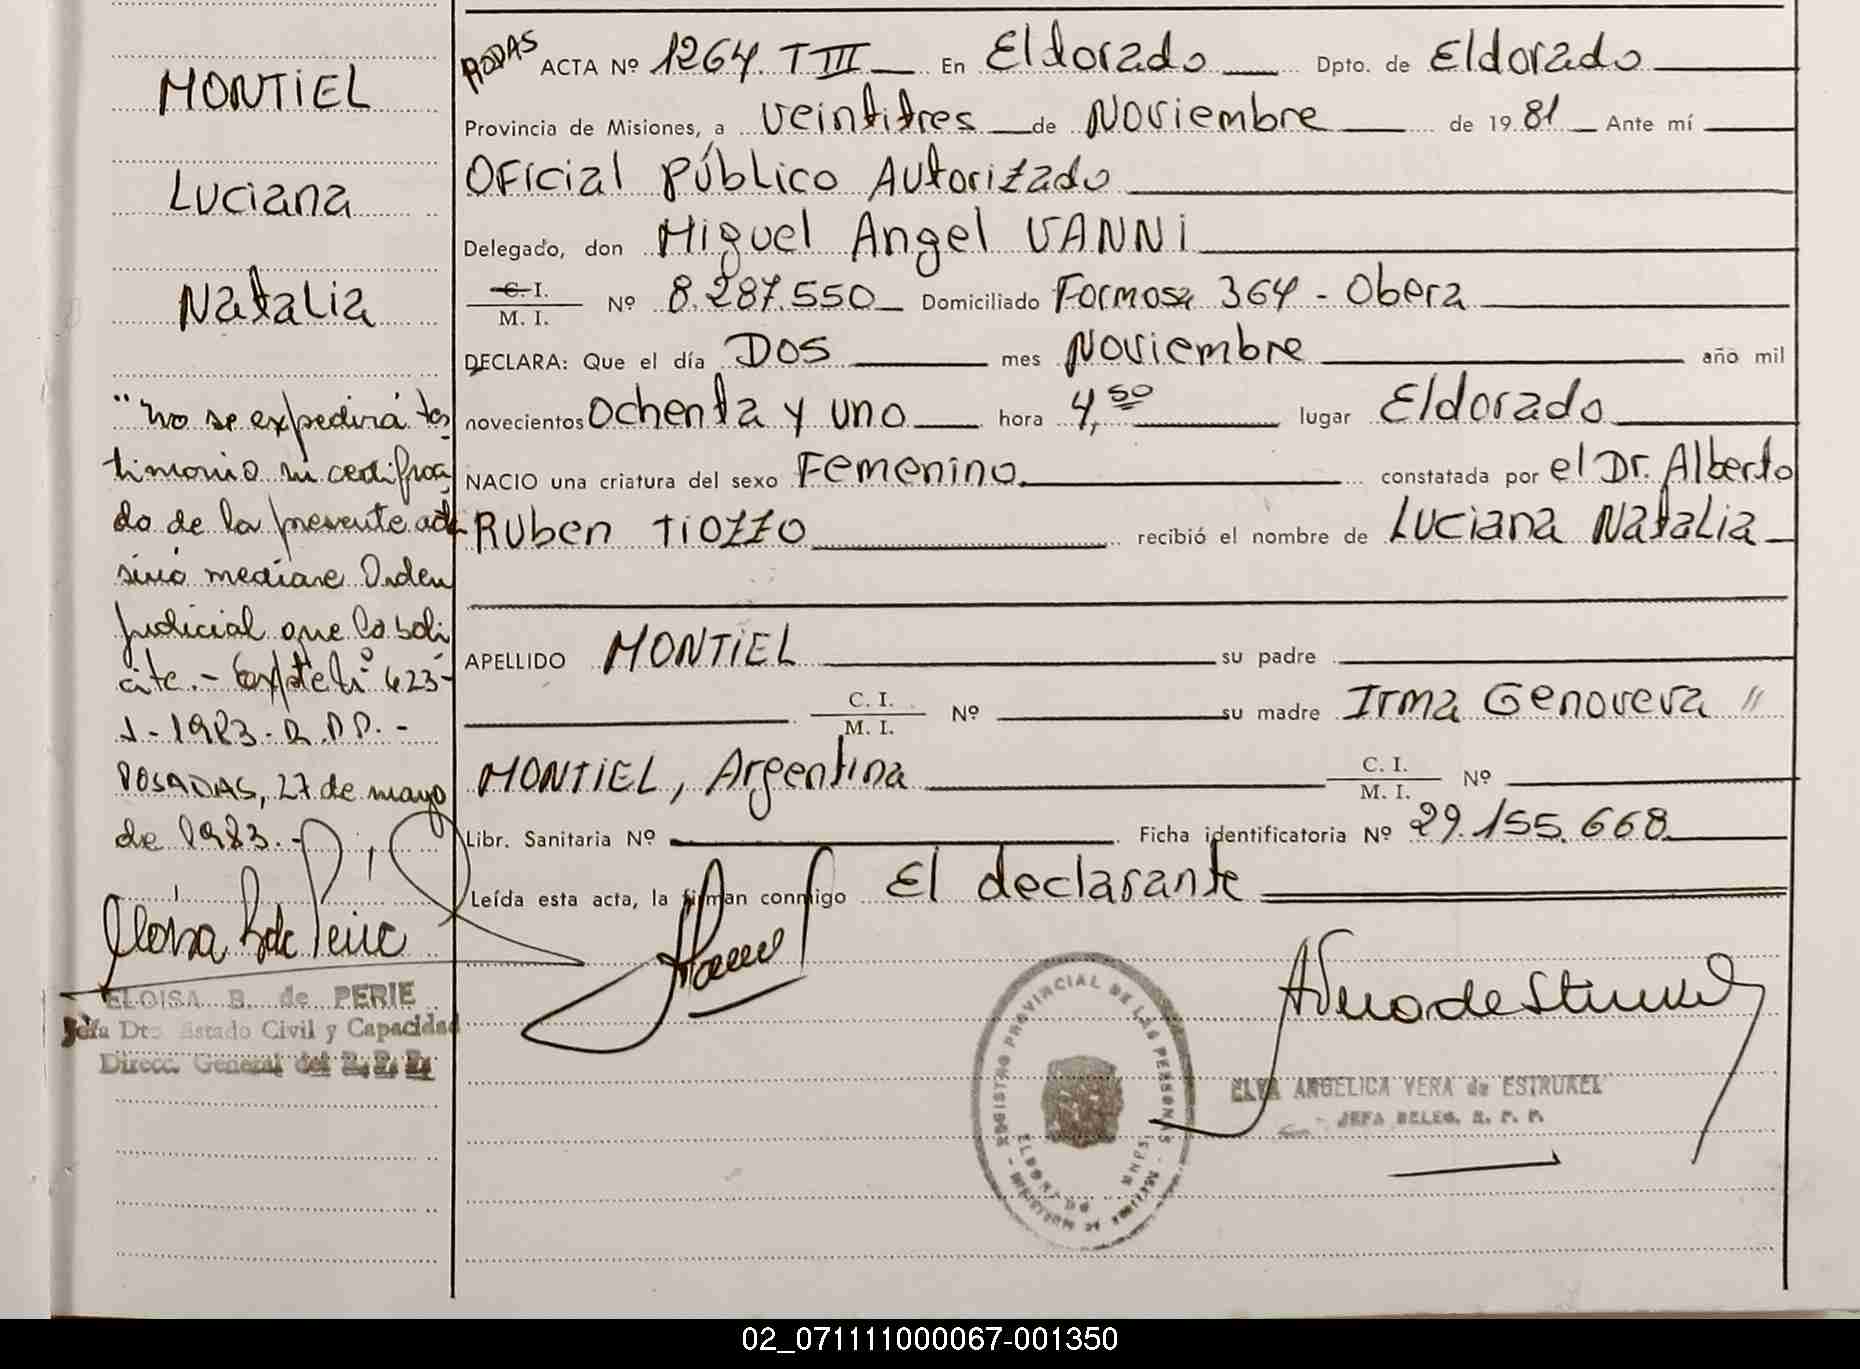 MONTIEL
Luciana
Natalia
"No se expedirá tes
timonio ni certifica
do de la presente acta
sinó mediare Orden
judicial que lo soli
cite.- Expte Nº 423-
1983. R.P.P.-
POSADAS, 27 de mayo
de 1983.-
ELOISA B. de PERIE
Jefa Dto Estado Civil y Capacidad
Direcc. General del R. P. P.
RODAS ACTA Nº 1264 T III En Eldorado Dpto. de Eldorado
Provincia de Misiones, a veintitres de Noviembre de 1981 Ante mí
Oficial Público Autorizado
Delegado, don Miguel Angel VANNI
C. I.
M. I. Nº 8.287.550 Domiciliado Formosa 364 - Obera
DECLARA: Que el día DOS mes Noviembre año mil
novecientos ochenta y uno hora 4,50 lugar Eldorado
NACIO una criatura del sexo Femenino constatada por el Dr. Alberto
Ruben TIOZZO recibió el nombre de Luciana Natalia
APELLIDO MONTIEL su padre
C. I.
M. I. Nº su madre Irma Genoveva "
MONTIEL, Argentina C. I.
M. I. Nº
Libr. Sanitaria Nº Ficha identificatoria Nº 29.155.668
Leída esta acta, la firman conmigo El declarante
REGISTRO PROVINCIAL DE LAS PERSONAS
ELDORADO MNES
ELVA ANGELICA VERA de ESTRUKEL
JEFA DELEG. R. P. P.
02_071111000067-001350